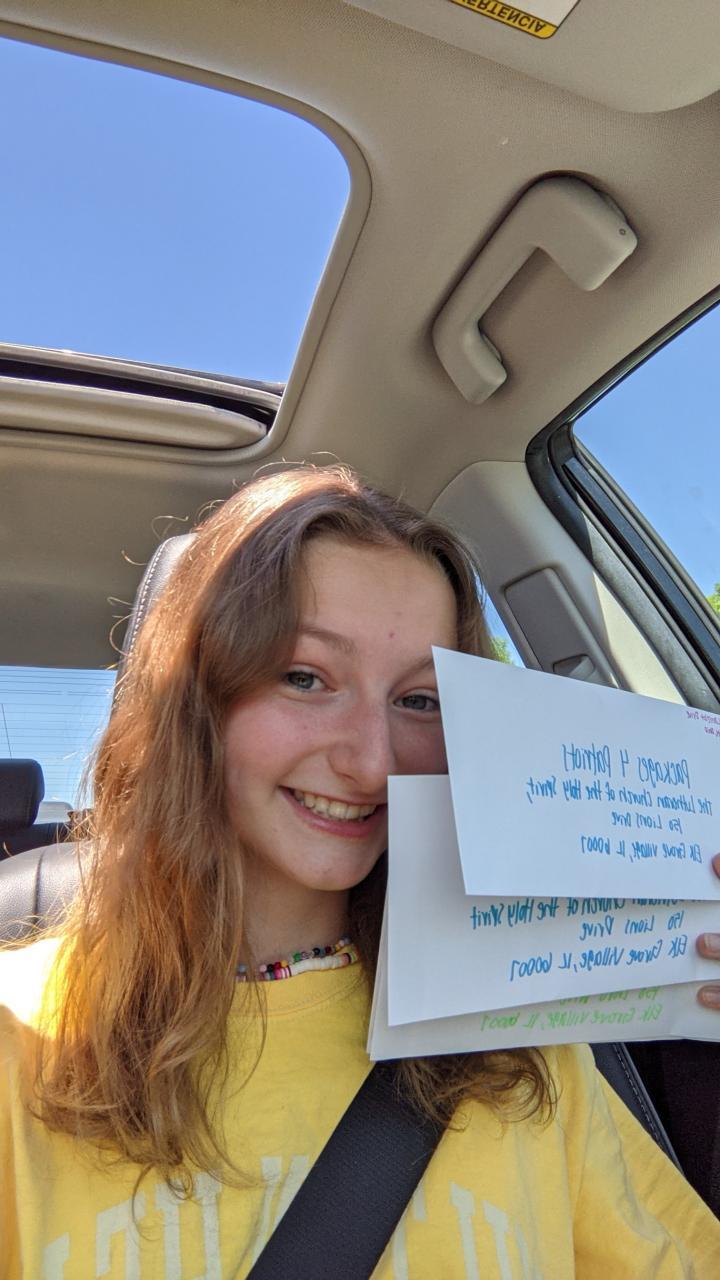 ERTENCIA
Drive
Packages 4 Patriots
The Lutheran Church of the Holy Spirit,
150 Lions Drive
Elk Grove Village, IL 60007
Church of the Holy Spirit
150 Lions Drive
Elk Grove Village, IL 60007
Elk Grove Village, IL 60007